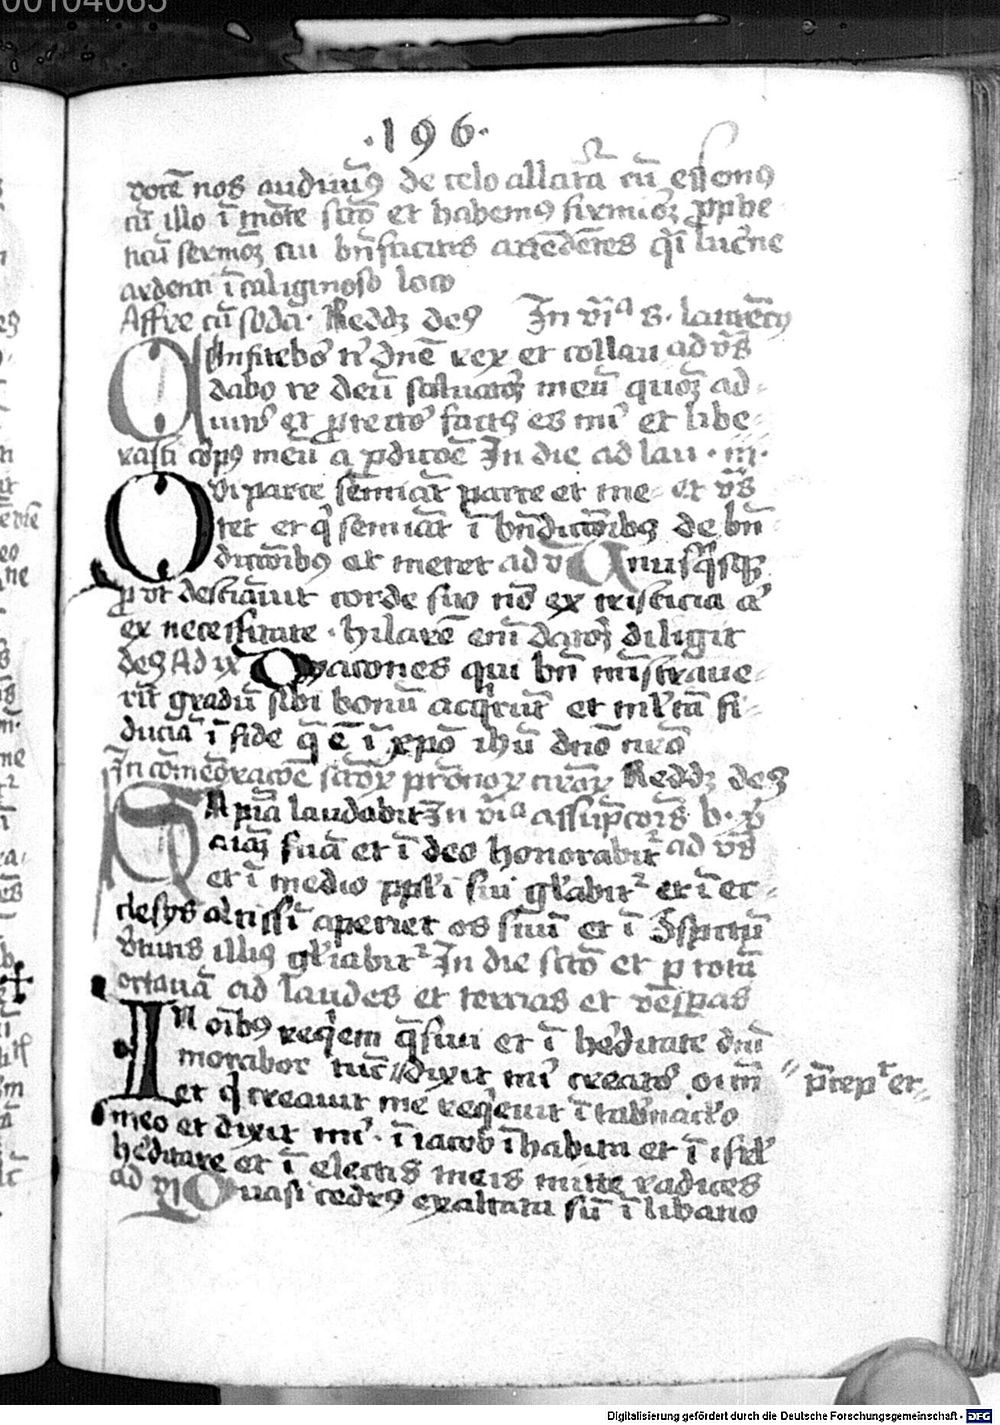 00104065
·196·
vocē nos audiuiꝰ de celo allatā cū essemꝰ
cū illo ī mōte scō et habemꝰ firmiorē ꝓphe
ticū sermonē cui bn̄ facitis attēdētes q̄i lucne
ardenti ī caliginoso loco
Affre cū socia. Reddꝫ deꝰ In vīa S. laurēcy
Onfitebor tˡ dnē rex et collau ad vs̄
dabo te deū saluatorē meū quoꝫ ad-
iutor et ꝓtector factꝰ es mˡ et libe-
rasti corpꝰ meū a ꝑdicōe In die ad lau . m.
Qui parce semiāt parce et me- et vs̄
tet et qˡ semiāt ī bn̄dictōibꝫ de bn̄-
dictōibꝰ et metet ad v Vnusqˢqꝫ
ꝓ vt destiāuit corde suo nō ex tristicia aˡ
ex necessitate . hilarē em̄ datorē diligit
deꝰ Ad ix Dyacones qui bn̄ mīstraue-
rūt gradū sibi bonū acqˡrūt et mˡtā fi-
duciā ī fide q̄ ē ī xpō ihū dnō nrō
In cōmeōracōe scōꝝ prōnoꝝ nrōꝝ Reddꝫ deꝰ
SApiā laudabit In vīa assūpcōis b. v
aīaꝫ suā et ī deo honorabit² ad vs̄
et ī medio ppˡi sui gˡabit² et ī ec-
clesys altissī aperiet os suū et ī ɔspectū
vtutis illiꝰ gˡiabit² In die scō et ꝑ totā
octauā ad laudes et tercias et vesꝑas
IN oībꝰ reqˡem q̄siui et ī heditate dnī
morabor tūc // dixit mˡ creator oīm "p̄cepˡt et-
et qˡ creauit me reqˡeuit ī tabnacˡo
meo et dixit mˡ . ī iacob īhabita et ī isrˡ
heditare et ī electis meis mitte radices
ad vi Quasi cedrꝰ exaltata sū ī libano
Digitalisierung gefördert durch die Deutsche Forschungsgemeinschaft - DFG